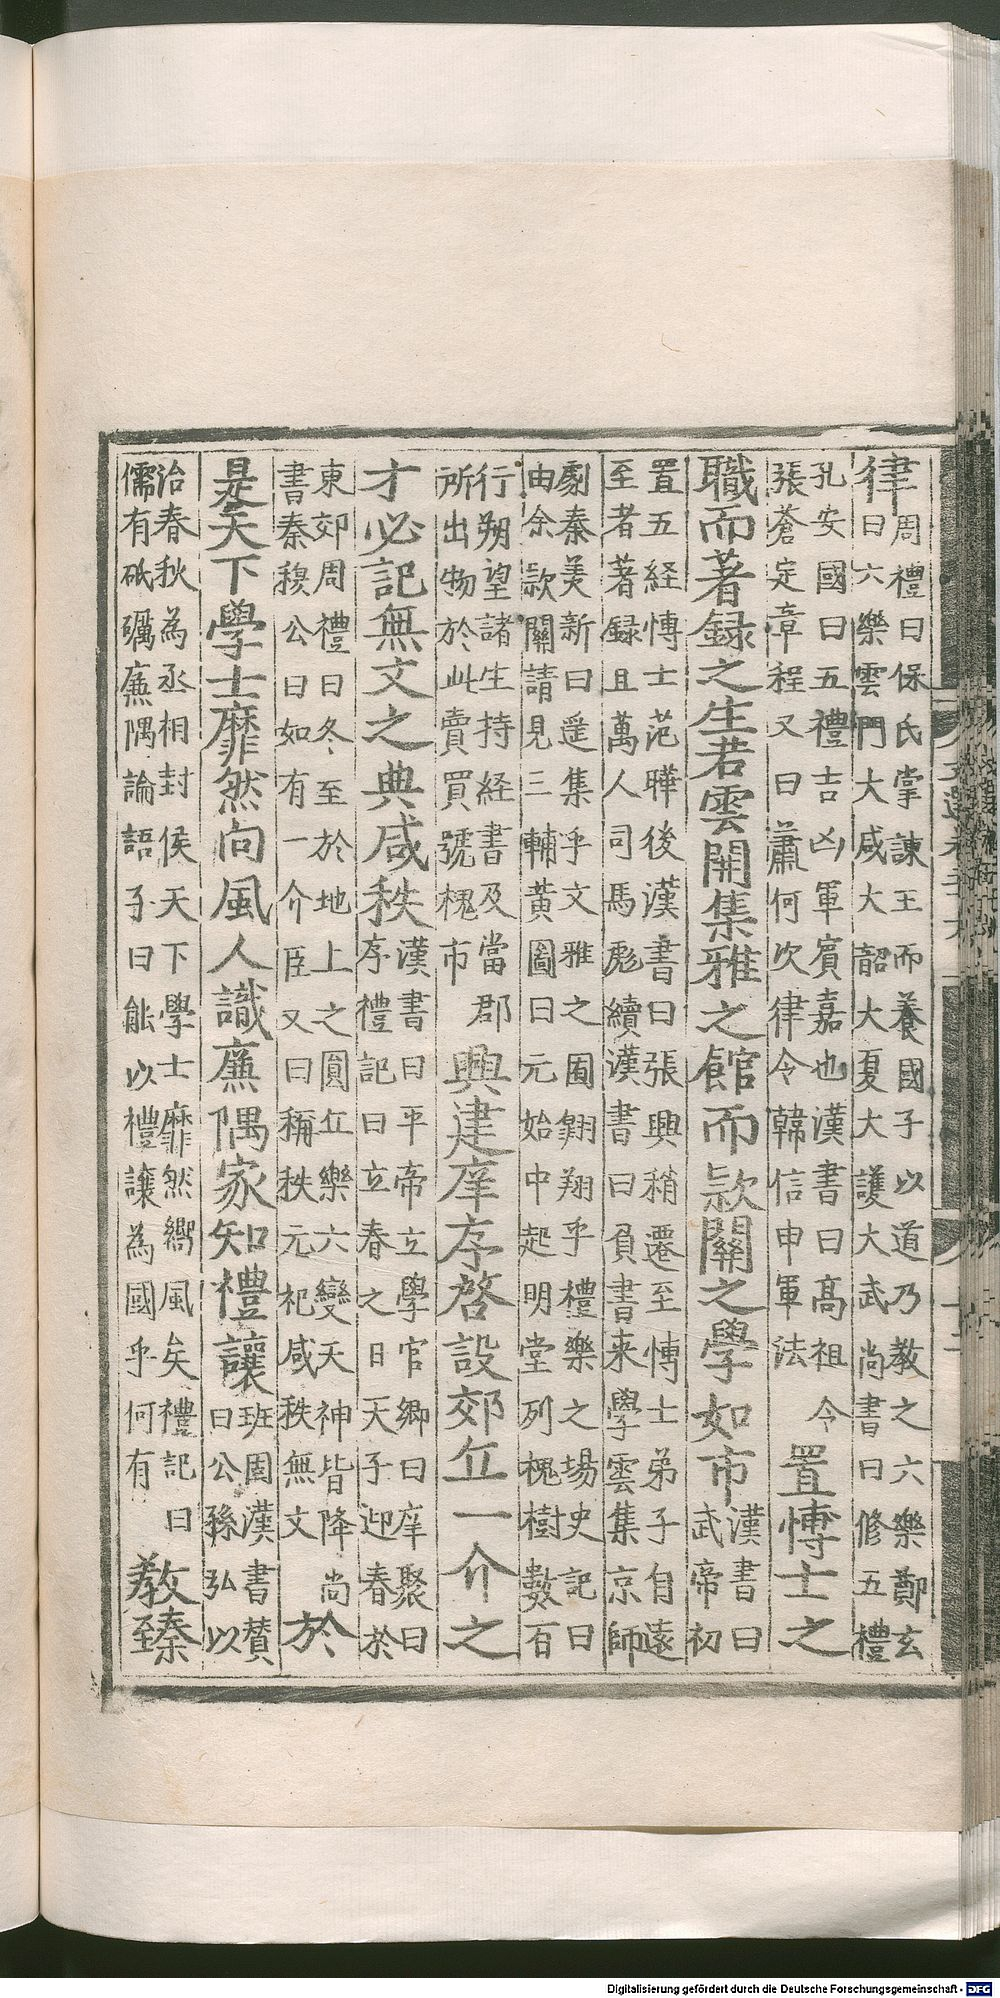 律
周禮曰保氏掌諫王而養國子以道乃教之六樂鄭玄
曰六樂雲門大咸大韶大夏大護大武尚書曰修五禮
孔安國曰五禮吉凶軍賓嘉也漢書曰高祖令
張蒼定章程又曰蕭何次律令韓信申軍法
置博士之
職而著録之生若雲開集雅之館而款關之學如市
漢書曰
武帝初
置五経博士范曄後漢書曰張興稍遷至博士弟子自遠
至者著録且萬人司馬彪續漢書曰負書来學雲集京師
劇秦美新曰遥集乎文雅之囿翱翔乎禮樂之場史記曰
由余款關請見三輔黄圖曰元始中起明堂列槐樹數百
行朔望諸生持経書及當郡
所出物於此賣買號槐市
興建庠序啓設郊丘一介之
才必記無文之典咸秩
漢書曰平帝立學官鄉曰庠聚曰
序禮記曰立春之日天子迎春於
東郊周禮曰冬至於地上之圓丘樂六變天神皆降尚
書秦穆公曰如有一介臣又曰稱秩元祀咸秩無文
於
是天下學士靡然向風人識廉隅家知禮讓
班固漢書贊
曰公孫弘以
治春秋為丞相封侯天下學士靡然嚮風矣禮記曰
儒有砥礪廉隅論語子曰能以禮讓為國乎何有
教臻
Digitalisierung gefördert durch die Deutsche Forschungsgemeinschaft - DFG